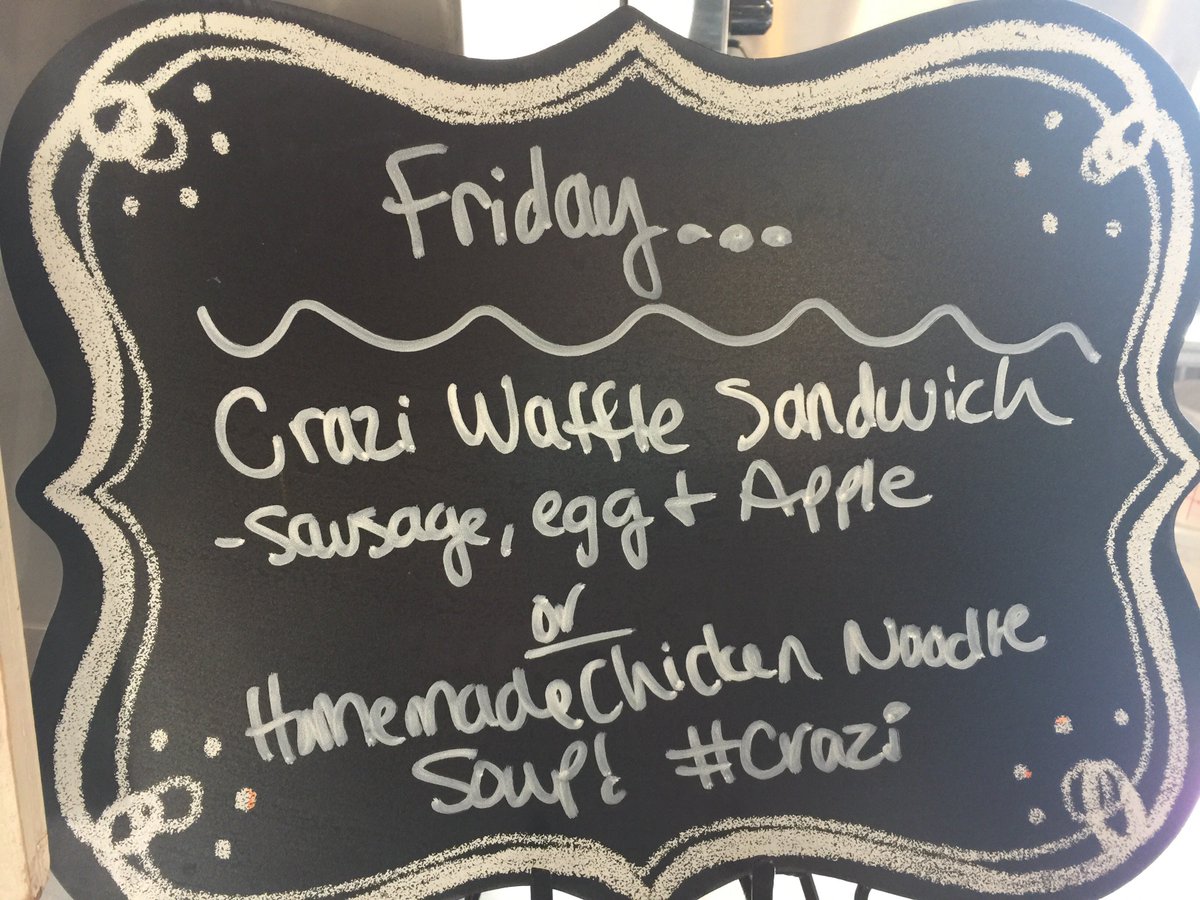 Friday....
Crazi Waffle Sandwich
-Sausage, egg + Apple
or
Homemade Chicken Noodle
Soup! #Crazi